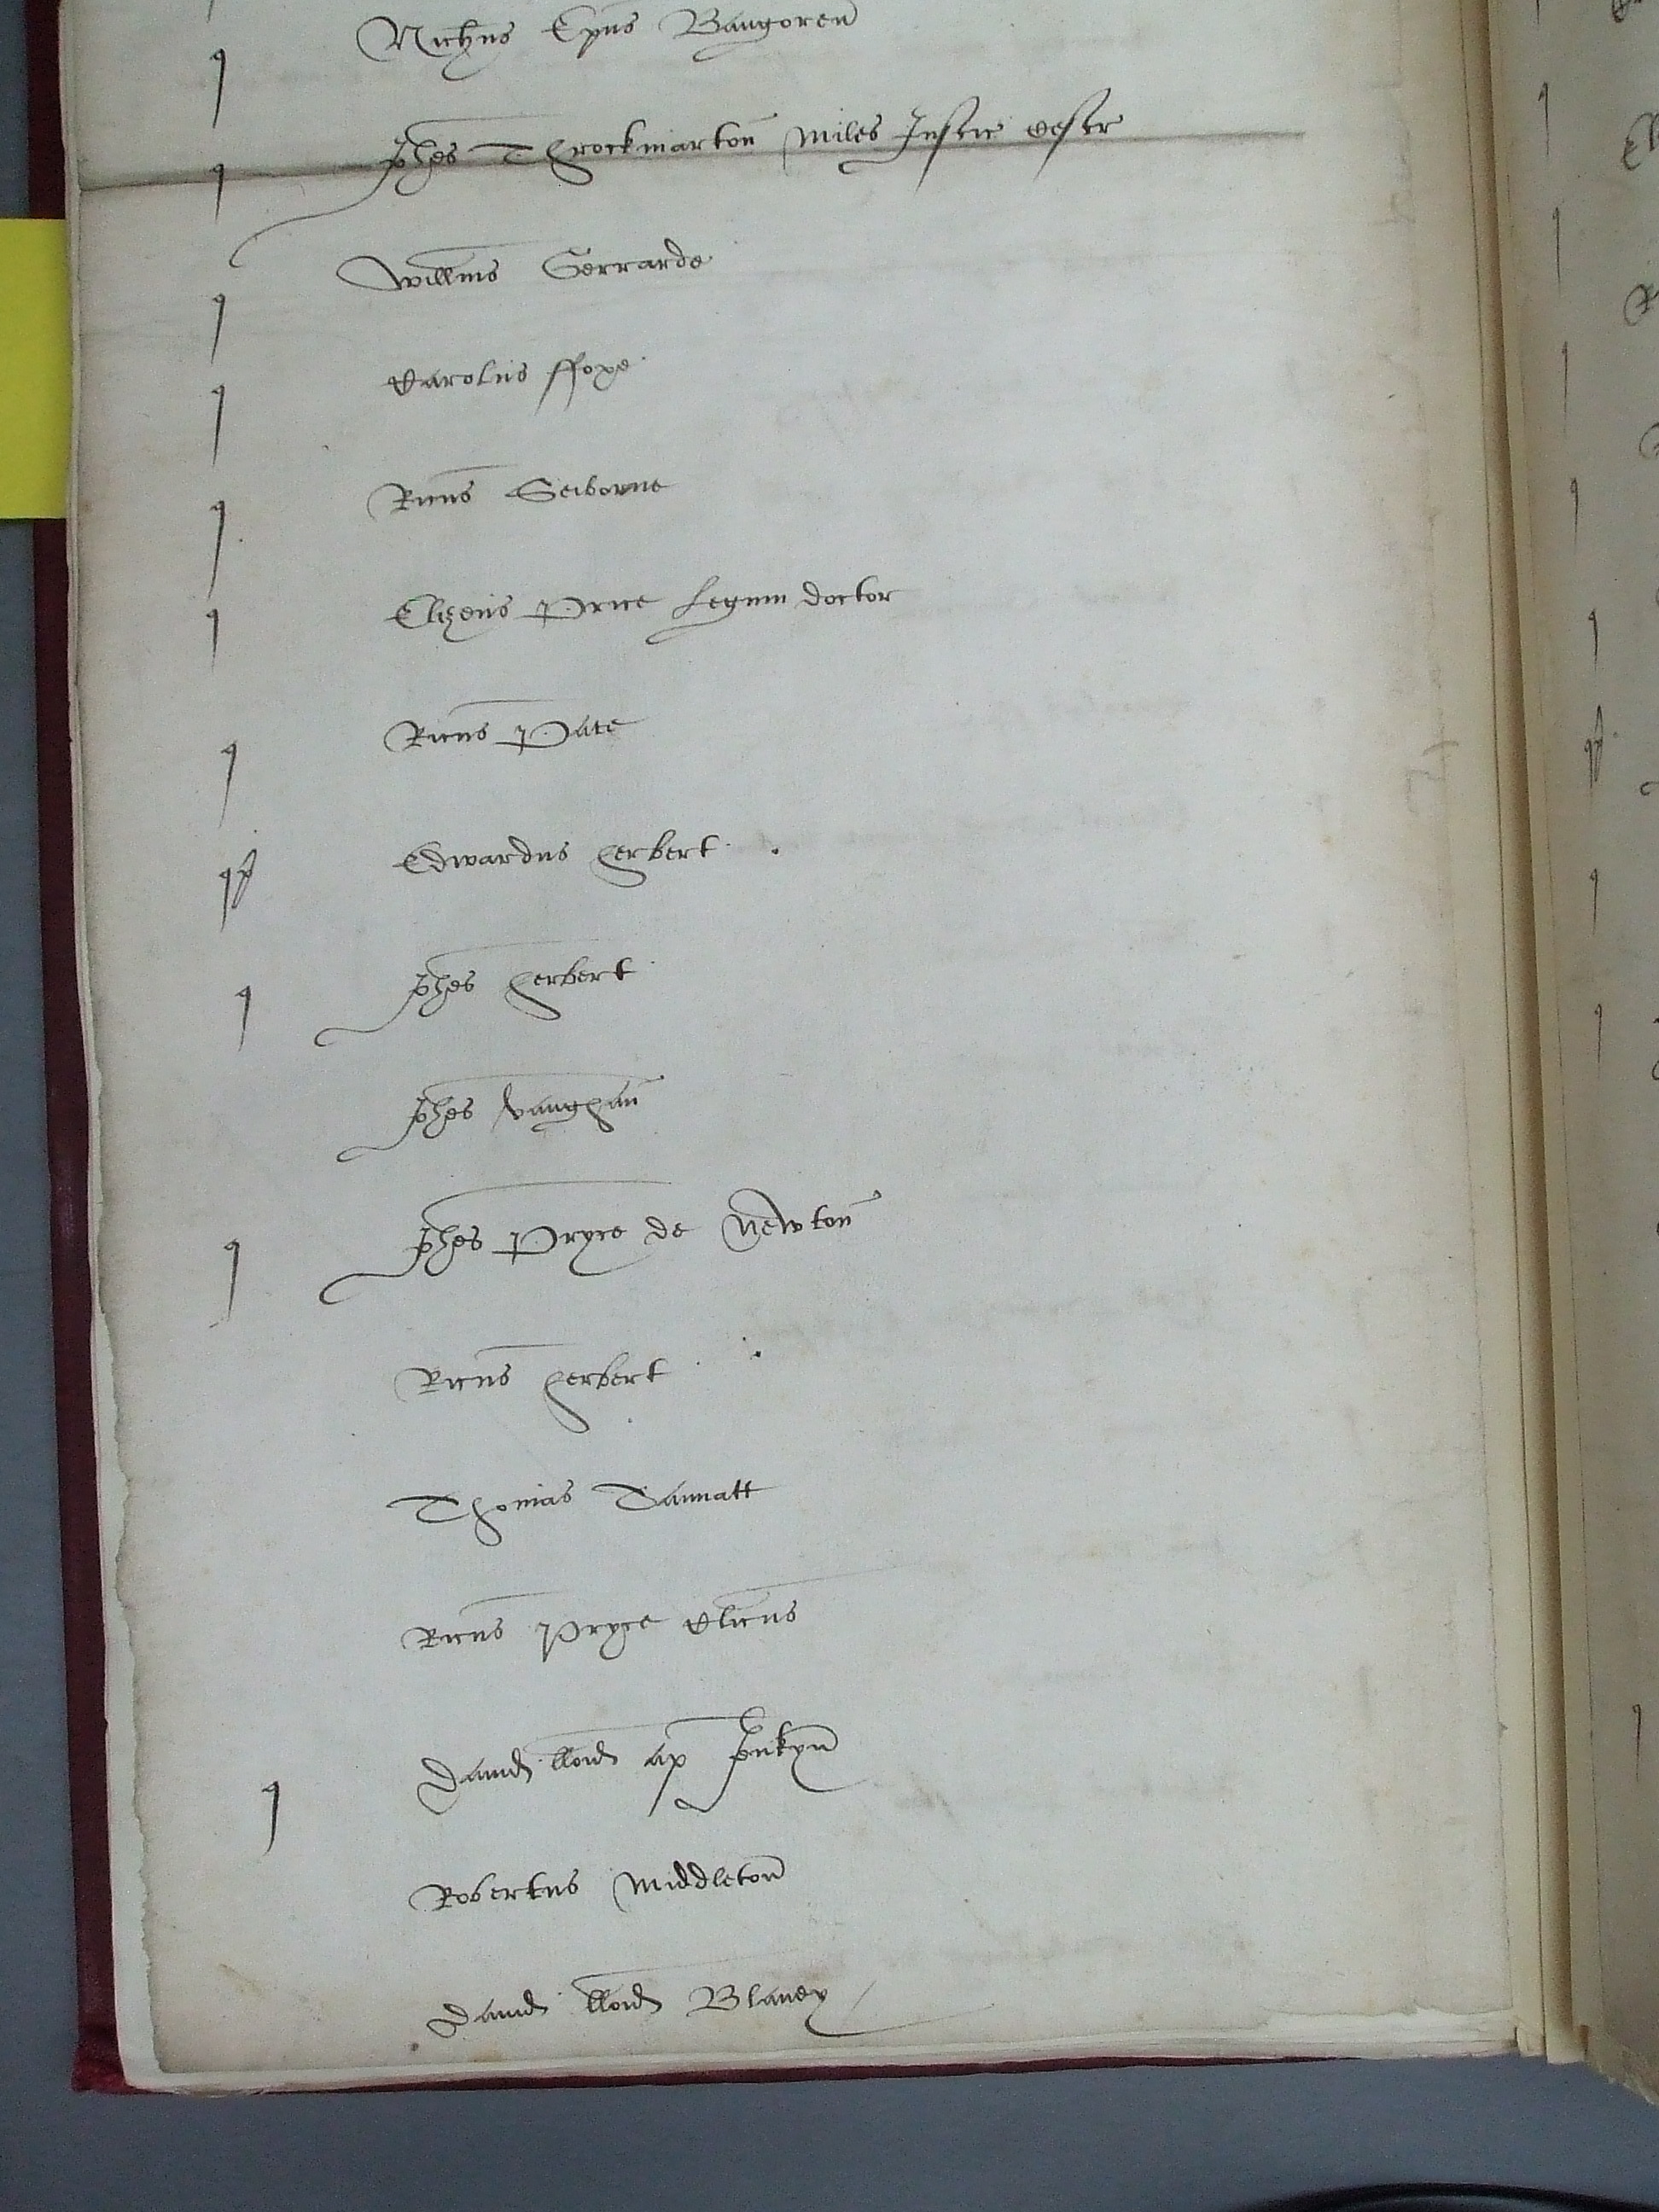 Nichus Epus Bangoren
Johes Throckmarton miles Justic Cestr
Willms Gerrarde
Carolus ffoxe
Ricus Seborne
Elizeus Price legum doctor
Ricus Pate
Edwardus herbert
Johes herbert
Johes vaughan
Johes Pryce de Newton
Ricus herbert
Thomas Tannatt
Ricus Pryce clicus
David lloid ap Jenkyn
Robertus Middleton
David lloid Blaney